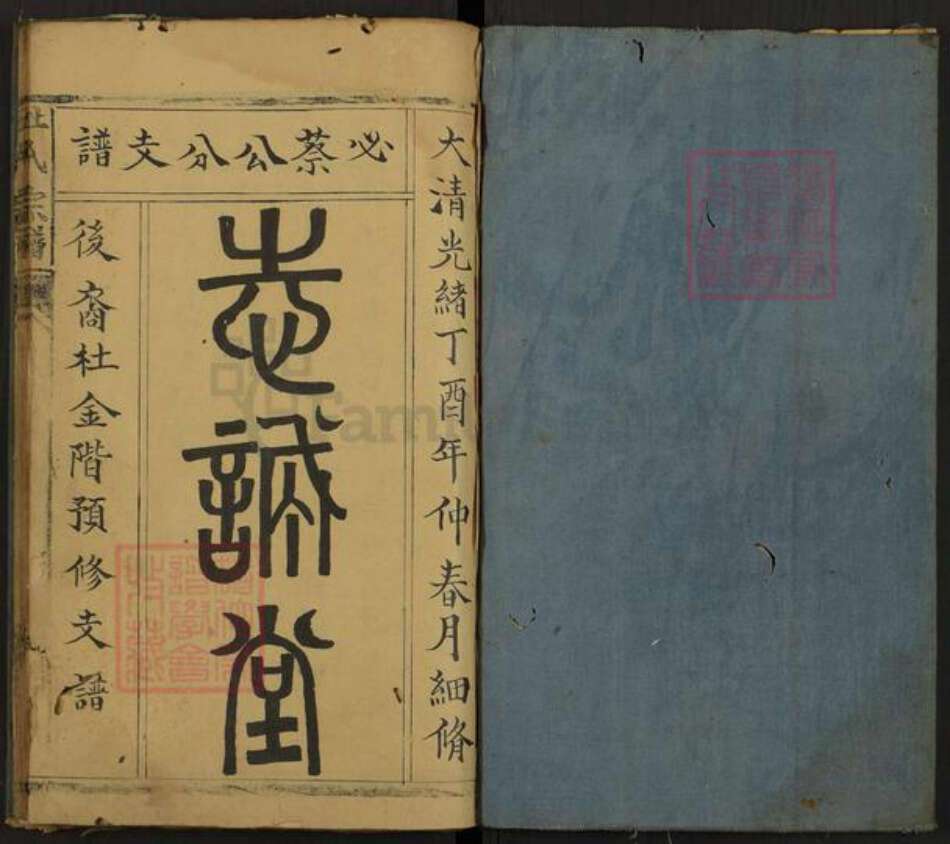 必蔡公分支譜
大清光緒丁酉年仲春月細脩
志誠堂
後裔杜金階預修支譜
杜氏宗譜